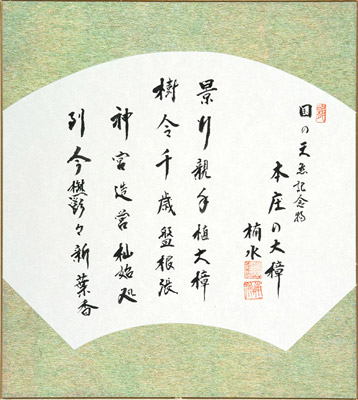 国の天然記念物
本庄の大樟
楠水
景行親手植大樟
樹令千歳盤根張
神宮造営杣始処
到今樾影々新葉香